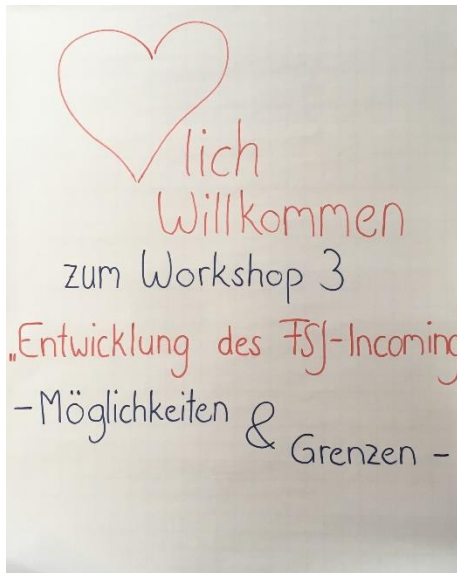 lich
Willkommen
zum Workshop 3
„Entwicklung des FSJ-Incoming
-Möglichkeiten & Grenzen -